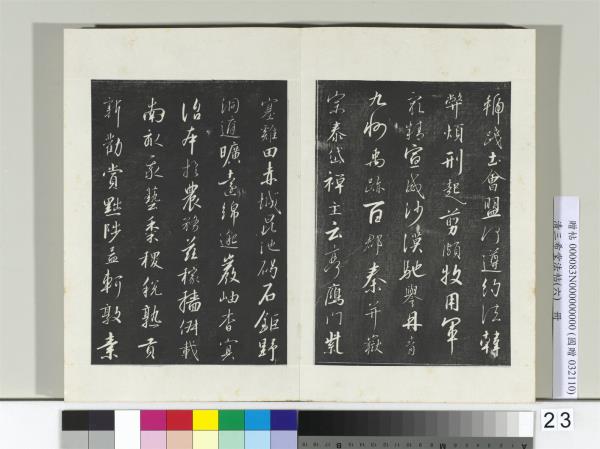 虢踐土會盟何遵約法韓
弊煩刑起翦頗牧用軍
最精宣威沙漠馳譽丹青
九州禹跡百郡秦并嶽
宗泰岱禪主云亭鴈門紫
塞雞田赤城昆池碣石鉅野
洞庭曠遠綿邈巖岫杳冥
治本於農務茲稼穡俶載
南畝我藝黍稷稅熟貢
新勸賞黜陟孟軻敦素
贈帖 000083N000000000 (國贈 032110)
清三希堂法帖(六) 冊
23